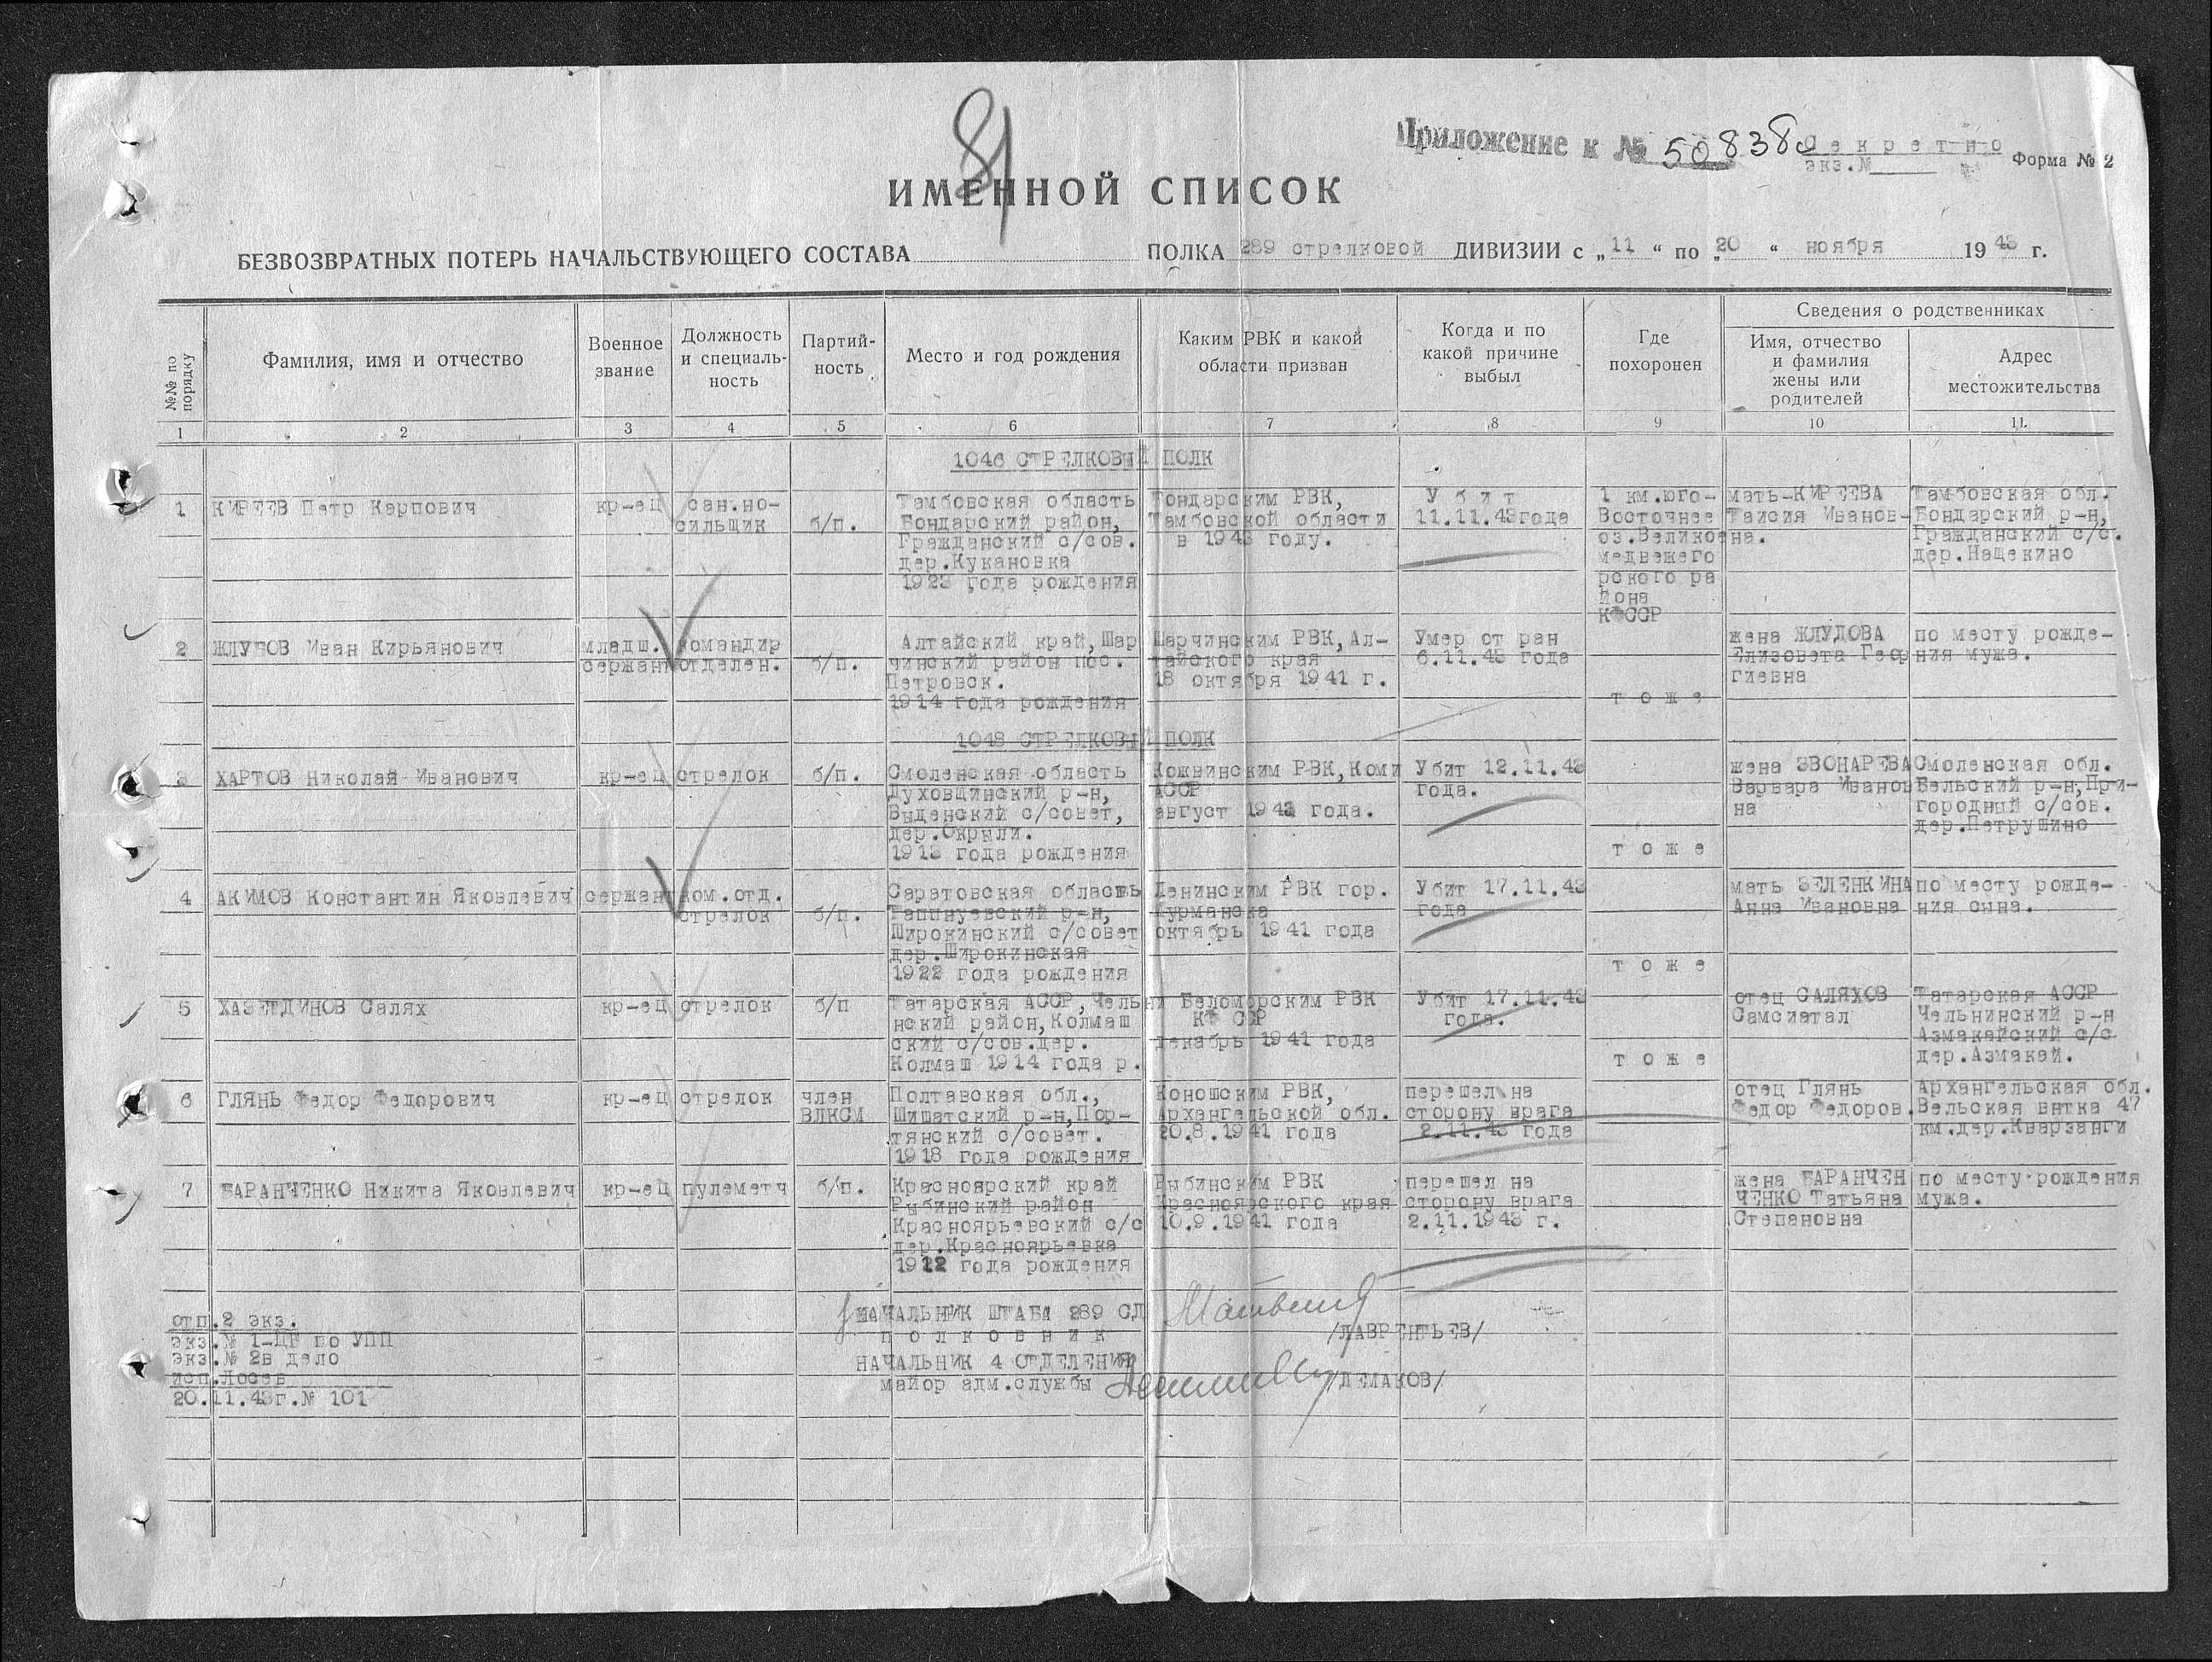 81
Приложение к № 50838с
Секретно
экз.№
Форма № 2
ИМЕННОЙ СПИСОК
БЕЗВОЗВРАТНЫХ ПОТЕРЬ НАЧАЛЬСТВУЮЩЕГО СОСТАВА ПОЛКА 289 стрелковой ДИВИЗИИ с „11“ по „20“ ноября 1943 г.
№№ по порядку
Фамилия, имя и отчество
Военное звание
Должность и специаль-ность
Партий-ность
Место и год рождения
Каким РВК и какой области призван
Когда и по какой причине выбыл
Где похоронен
Сведения о родственниках
Имя, отчество и фамилия жены или родителей
Адрес местожительства
1 2 3 4 5 6 7 8 9 10 11
1046 СТРЕЛКОВЫЙ ПОЛК
1 КИРЕЕВ Петр Карпович
кр-ец
сан.но-
сильщик
б/п.
Тамбовская область
Бондарский район,
Гражданский с/сов.
дер.Кукановка
1923 года рождения
Бондарским РВК,
Тамбовской области
в 1943 году.
Убит
11.11.43года
1 км.юго-
Восточнее
оз.Великое
медвежего
рского ра
йона
КФССР
мать-КИРЕЕВА
Таисия Иванов-
на.
Тамбовская обл.
Бондарский р-н,
Гражданский с/с.
дер.Нащекино
2 ЖЛУДОВ Иван Кирьянович
младш.
сержант
командир
отделен.
б/п.
Алтайский край, Шар
чинский район пос.
Петровск.
1914 года рождения
Шарчинским РВК, Ал-
тайского края
18 октября 1941 г.
Умер от ран
6.11.43 года
тоже
жена ЖЛУДОВА
Елизовета Геор
гиевна
по месту рожде-
ния мужа.
1048 СТРЕЛКОВЫЙ ПОЛК
3 ХАРТОВ Николай Иванович
кр-ец
стрелок
б/п.
Смоленская область
Духовщинский р-н,
Выденский с/совет,
дер.Скрыли.
1913 года рождения
Кожвинским РВК, Коми
АССР
август 1943 года.
Убит 12.11.43
года.
тоже
жена ЗВОНАРЕВА
Варвара Иванов
на
Смоленская обл.
Бельский р-н, При-
городный с/сов.
дер.Петрушино
4 АКИМОВ Константин Яковлевич
сержант
ком.отд.
стрелок
б/п.
Саратовская область
Широкинский с/совет
дер.Широкинская
1922 года рождения
Ленинским РВК гор.
Мурманска
октябрь 1941 года
Убит 17.11.43
года
тоже
мать ЗЕЛЕНКИНА
Анна Ивановна
по месту рожде-
ния сына.
5 ХАЗЕТДИНОВ Салях
кр-ец
стрелок
б/п
Татарская АССР, Челны
нский район, Колмаш
ский с/сов.дер.
Колмаш 1914 года р.
Беломорским РВК
КФ ССР
декабрь 1941 года
Убит 17.11.43
года.
тоже
отец САЛЯХОВ
Самсиатал
Татарская АССР
Чельнинский р-н
Азмакайский с/с
дер.Азмакай.
6 ГЛЯНЬ Федор Федорович
кр-ец
стрелок
член
ВЛКСМ
Полтавская обл.,
Шишатский р-н, Пор-
тянский с/совет.
1918 года рождения
Коношским РВК,
Архангельской обл.
20.8.1941 года
перешел на
сторону врага
2.11.43 года
отец Глянь
Федор Федоров.
Архангельская обл.
Вельская ветка 47
км.дер.Кварзанги
7 БАРАНЧЕНКО Никита Яковлевич
кр-ец
пулеметч
б/п.
Красноярский край
Рыбинский район
Красноярьевский с/с
дер.Красноярьевка
1912 года рождения
Рыбинским РВК
Красноярского края
10.9.1941 года
перешел на
сторону врага
2.11.1943 г.
жена БАРАНЧЕН
ЧЕНКО Татьяна
Степановна
по месту рождения
мужа.
НАЧАЛЬНИК ШТАБА 289 СД
полковник
/ЛАВРЕНТЬЕВ/
НАЧАЛЬНИК 4 ОТДЕЛЕНИЯ
майор адм.службы
/ЛЕМАКОВ/
отп.2 экз.
экз.№ 1-ЦБ по УПП
экз.№ 2в дело
исп.Лосев
20.11.43г.№ 101